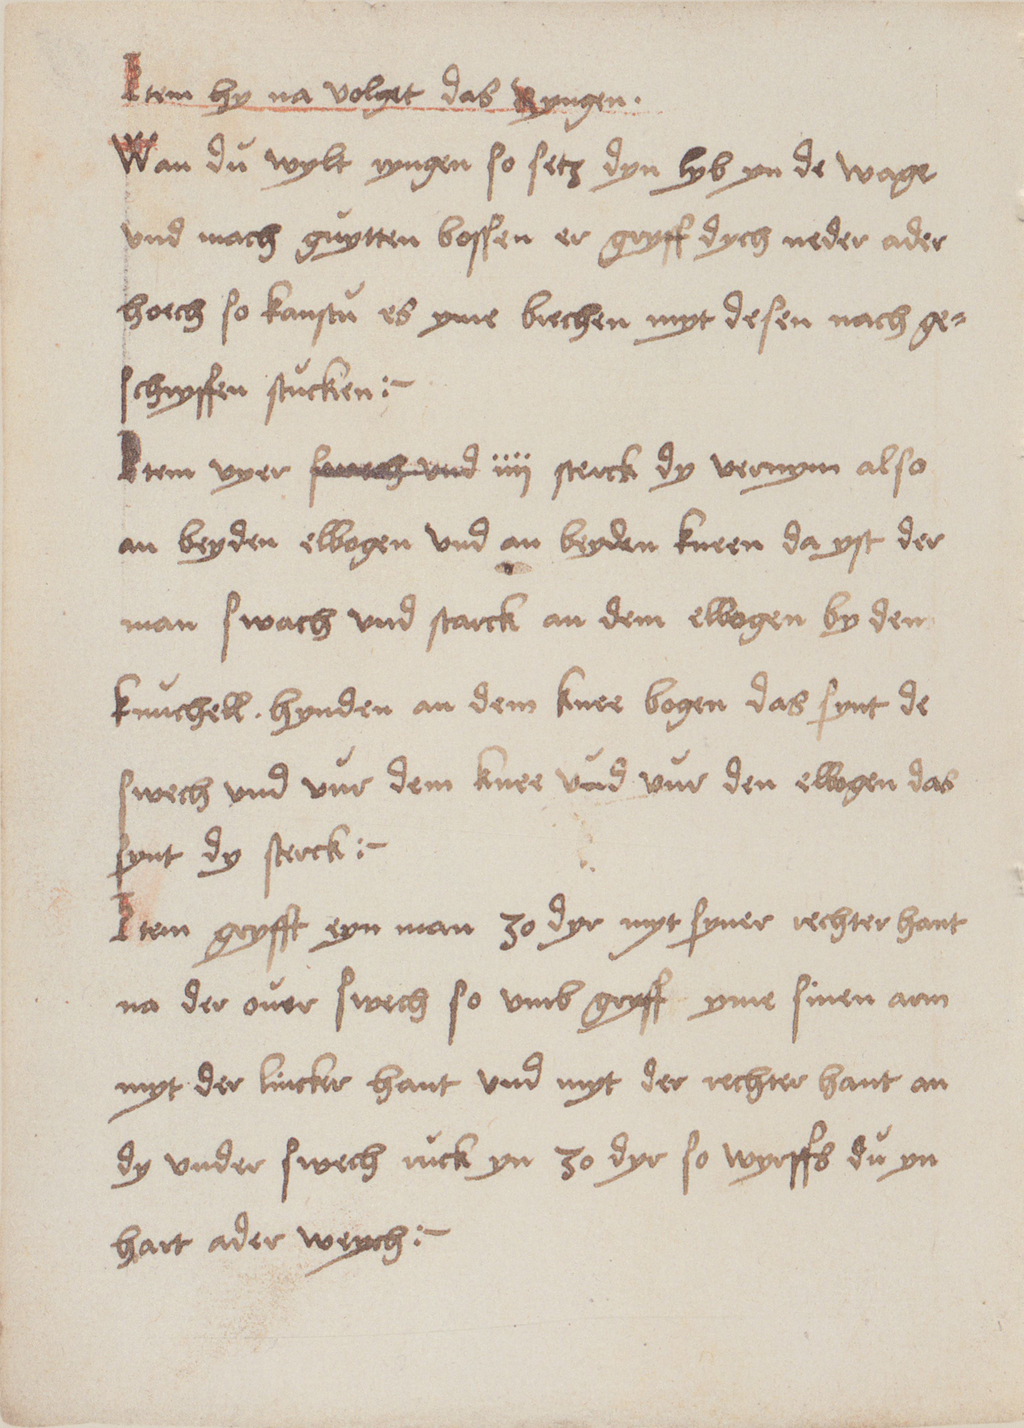 Item hy na volget das Ryngen.
Wan du wylt ryngen so setz dyn lyb yn de wage
vnd mach guytten bossen er gryff dych neder ader
hoech so kanstu es yme brechen myt desen nach ge-
schryffen stucken :~
Item vyer swech vnd iiij sterck dy vernym also
an beyden elbogen vnd an beyden kneen da yst der
man swach vnd starck an dem elbogen by dem
knuchell. hynden an dem knee bogen das synt de
swech vnd vur dem knee vnd vur den elbogen das
synt dy sterck :~
Item gryfft eyn man zo dyr myt syner rechter hant
na der ouer swech so vmb gryff yme sinen arm
myt der lincker hant vnd myt der rechter hant an
dy vnder swech ruck yn zo dyr so wyrffs du yn
hart ader weych :~